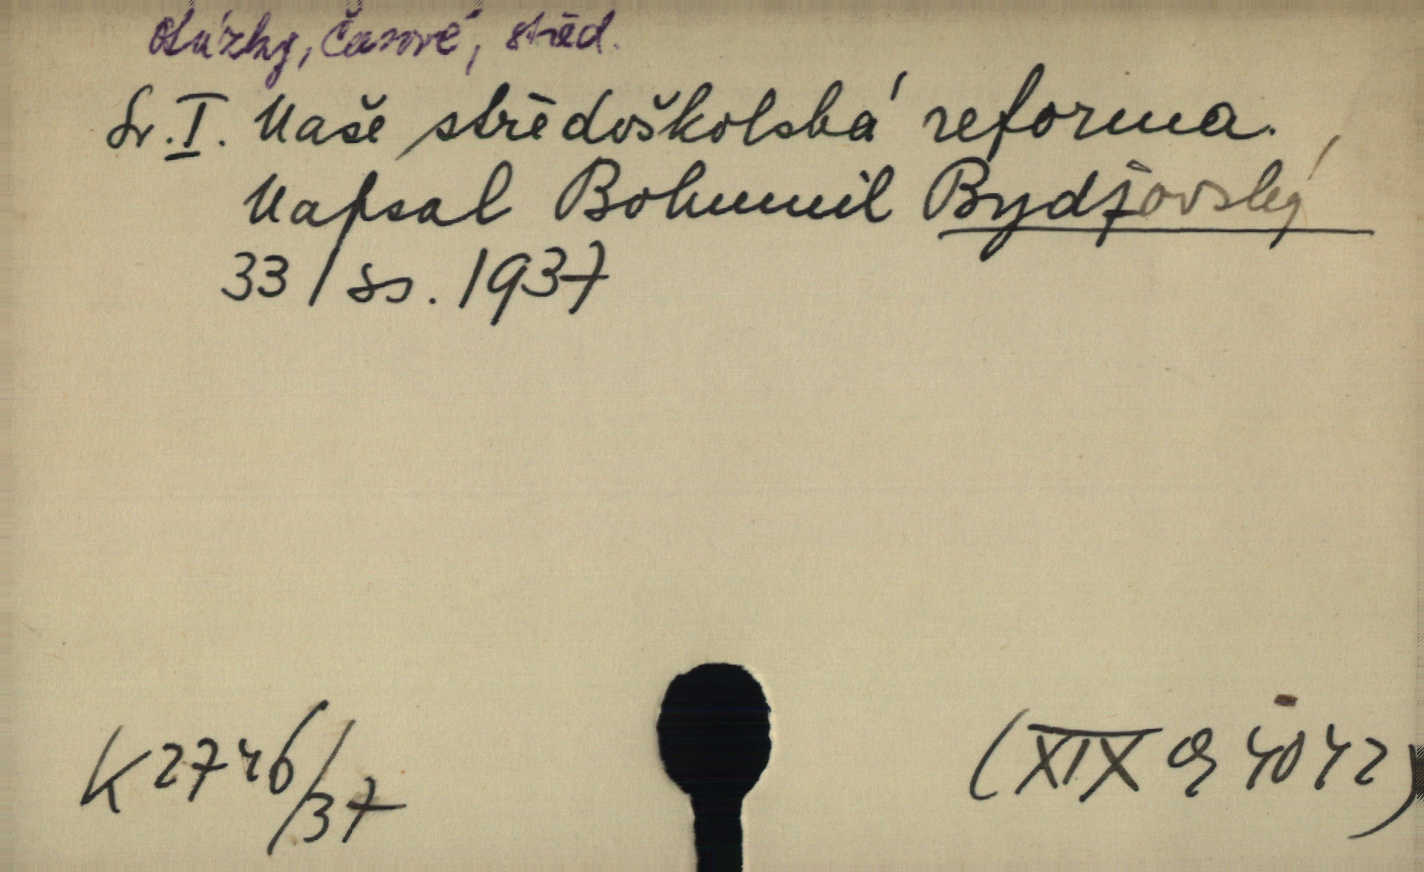 Otázky, Časové, střed.
Sv. I. Naše středoškolská reforma.
Napsal Bohumil Bydžovský
33 / ss. 1937
K 2746/37
(XIX 4042)